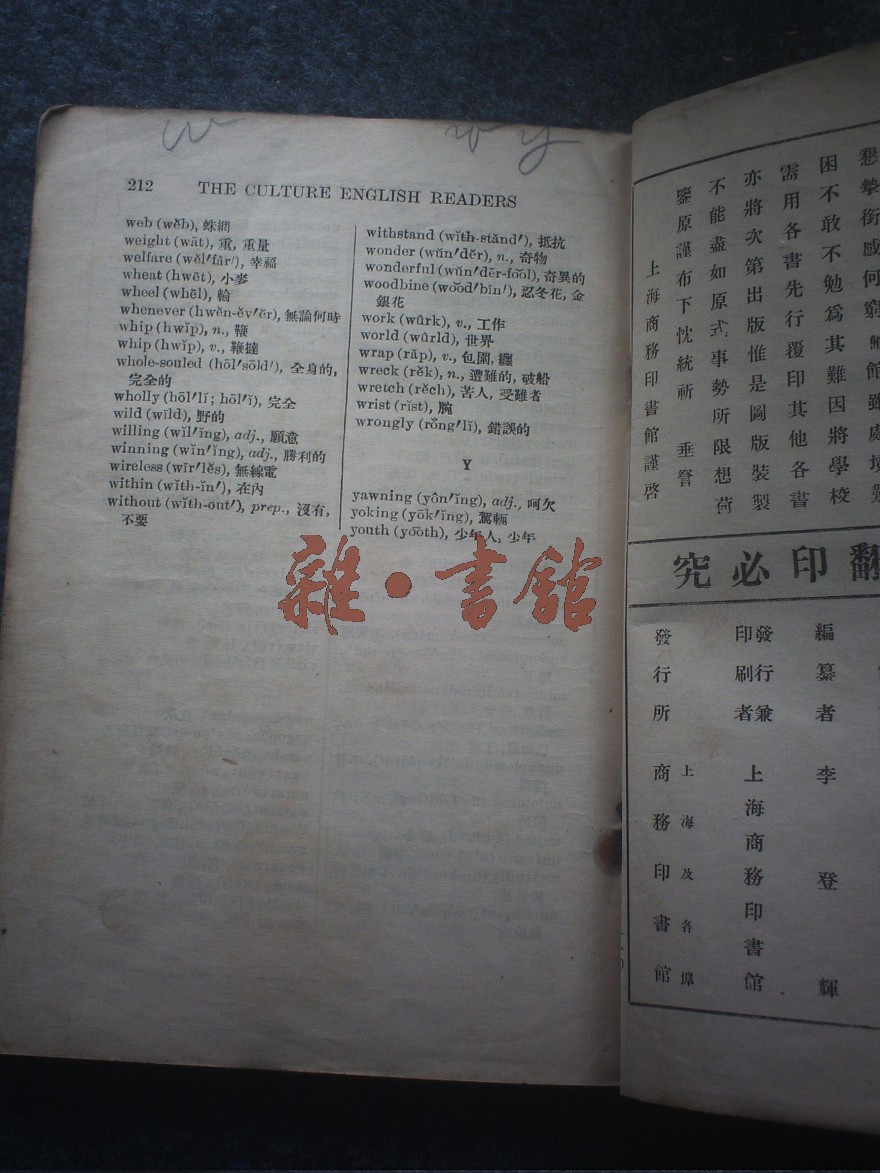 w
w y
212 THE CULTURE ENGLISH READERS
web (wĕb), 蛛網
weight (wāt), 重, 重量
welfare (wĕl′fâr′), 幸福
wheat (hwēt), 小麥
wheel (whēl), 輪
whenever (hwĕn-ĕv′ẽr), 無論何時
whip (hwĭp), n., 鞭
whip (hwĭp), v., 鞭撻
whole-souled (hōl′sōld′), 全身的,
完全的
wholly (hōl′lĭ; hōl′ĭ), 完全
wild (wīld), 野的
willing (wĭl′ĭng), adj., 願意
winning (wĭn′ĭng), adj., 勝利的
wireless (wīr′lĕs), 無線電
within (wĭth-ĭn′), 在內
without (wĭth-out′), prep., 沒有,
不要
withstand (wĭth-stănd′), 抵抗
wonder (wŭn′dẽr), n., 奇物
wonderful (wŭn′dẽr-fo͝ol), 奇異的
woodbine (wo͝od′bīn′), 忍冬花, 金
銀花
work (wûrk), v., 工作
world (wûrld), 世界
wrap (răp), v., 包圍, 纏
wreck (rĕk), n., 遭難的, 破船
wretch (rĕch), 苦人, 受難者
wrist (rĭst), 腕
wrongly (rŏng′lĭ), 錯誤的
Y
yawning (yôn′ĭng), adj., 呵欠
yoking (yōk′ĭng), 駕軛
youth (yo͞oth), 少年人, 少年
雜·書館
懇摯銜感何窮
困不敢不勉爲其難因將學校
需用各書先行覆印其他各書
亦將次第出版惟是圖版裝製
不能盡如原式事勢所限想荷
鑒原謹布下忱統祈 垂詧
上海商務印書館謹啓
翻印必究
編纂者 李登輝
發行兼
印刷者 上海商務印書館
發行所 上海及各埠
商務印書館